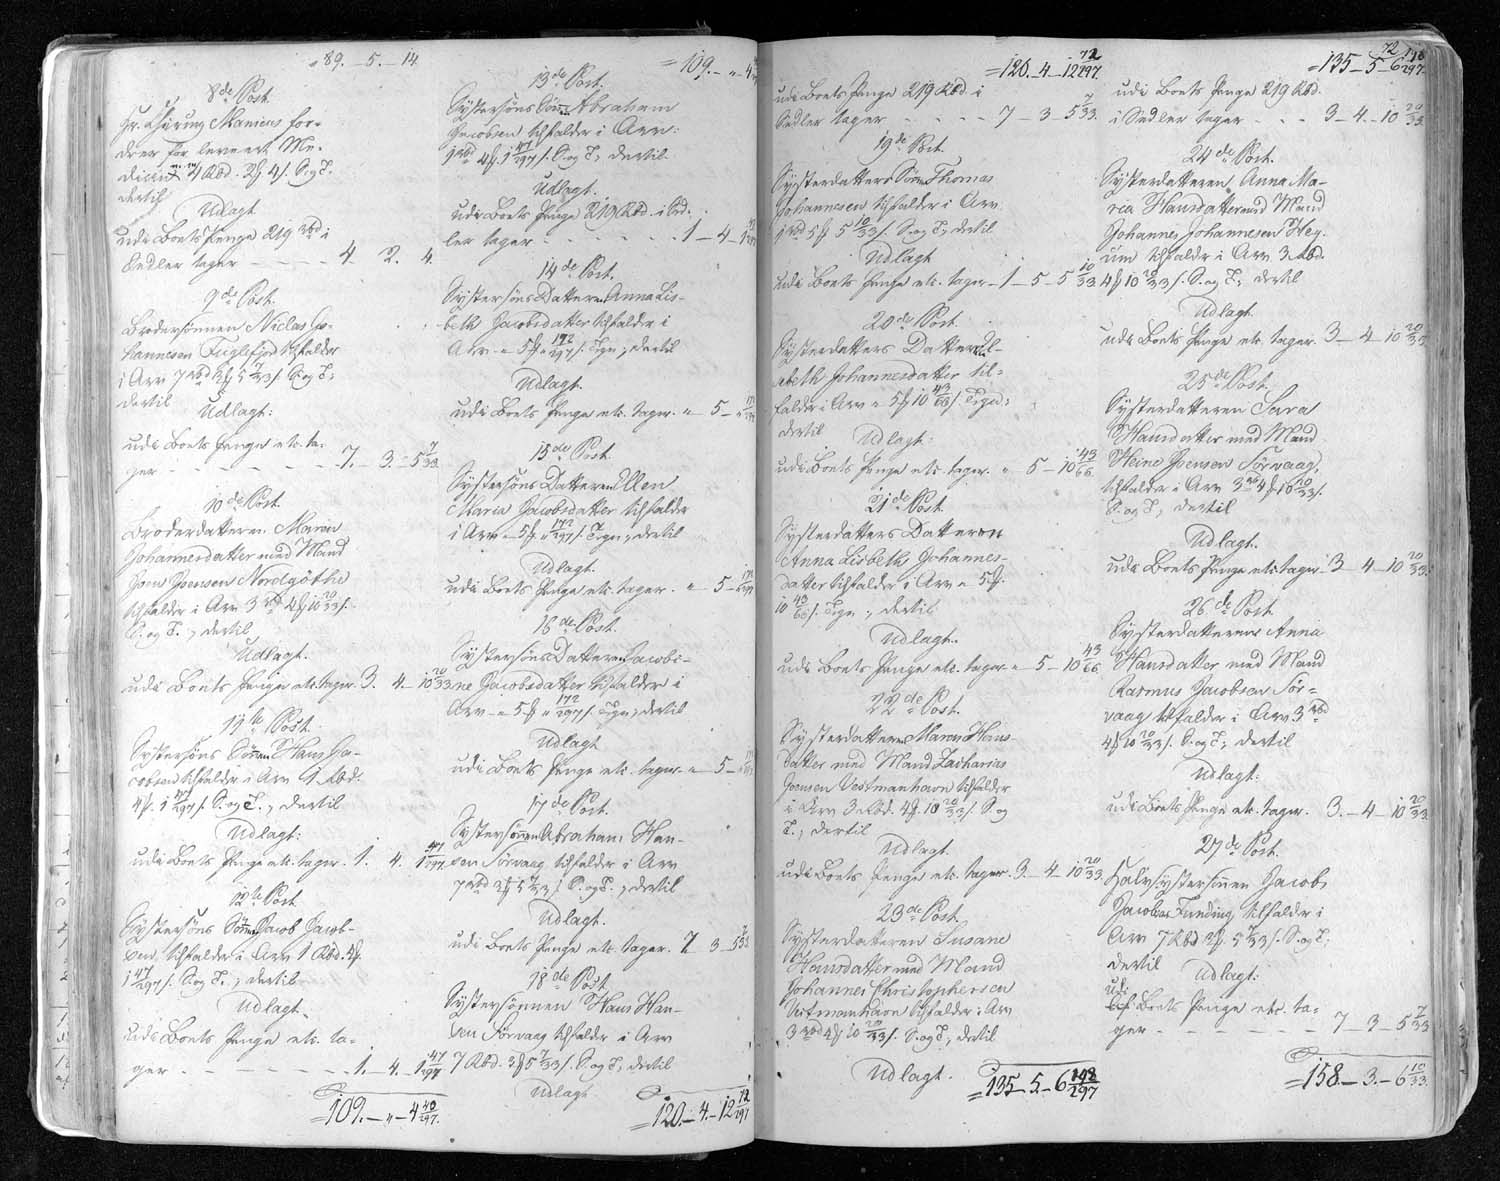 89. - 5. - 14
8de Post.
Hr. Chirurg Manicus for-
drer for leveret Me-
dicin 4 Rbd. 2 ß 4 S. og T.
dertil
Udlagt
udi Boets Penge 219 rbd i
Sedler tager - - - - 4. 2. 4.
9de Post.
Brodersønnen Niclas Jo-
hannesen Fuglefjord tilfalder
i Arv 7 rbd 3 5 7/33 S. og T.,
dertil
Udlagt:
udi Boets Penge etc. ta-
ger - - - - - 7. - 3. - 5 7/33.
10de Post.
Broderdatteren Maren
Johannesdatter med Mand
Joen Joensen Nordgöthe
tilfalder i Arv 3 rbd 4 10 20/33
S. og T., dertil
Udlagt.
udi Boets Penge etc. tager. 3. 4. - 10 20/33.
11te Post.
Systersöns Sönnen Hans Ja-
cobsen tilfalder i Arv 1 Rbd.
4 1 47/297 S. og T., dertil
Udlagt:
udi Boets Penge etc. tager. 1. 4. 1 47/297.
12te Post
Systersöns Sönnen Jacob Jacob-
sen, tilfalder i Arv 1 Rbd. 4
1 47/297 S. og T., dertil
Udlagt.
udi Boets Penge etc. ta-
ger - - - - - 1. - 4. - 1 47/297
= 109. - " - 4 40/297.
= 109. - " - 4
13de Post.
Systersöns Sönnen Abraham
Jacobsen tilfalder i Arv:
1 rbd 4 1 47/297 S. og T., dertil.
Udlagt.
udi Boets Penge 219 Rbd. i Sed-
ler tager - - - - - 1 - 4 - 1
14de Post.
Systersöns Datteren Anna Lis-
beth Jacobsdatter tilfalder i
Arv " 5 " 172/297 Tegn, dertil
Udlagt.
udi Boets Penge etc. tager. " - 5 - "
15de Post
Systersöns Datteren Ellen
Maria Jacobsdatter tilfalder
i Arv " 5 " 172/297 Tegn, dertil
Udlagt.
udi Boets Penge etc. tager. " - 5 -
16de Post.
Systersöns Datteren Jacobi-
ne Jacobsdatter tilfalder i
Arv - " 5 " 172/297 Tegn, dertil
Udlagt
udi Boets Penge etc. tager. " - 5 -
17de Post.
Systersönnen Abraham Han-
sen Sörvaag tilfalder i Arv
7 rbd 3 5 7/33 S. og T., dertil
Udlagt.
udi Boets Penge etc. tager. 7 3 - 5 7/33
18de Post
Systersönnen Hans Han-
sen Sörvaag tilfalder i Arv
7 Rbd. 3 5 7/33 S. og T., dertil
Udlagt
= 120. - 4. - 12 72/297
= 120. - 4 - 12 72/297.
udi Boets Penge 219 Rbd i
Sedler tager - - - - 7 - 3 - 5 7/33.
19de Post
Systerdatters Sönnen Thomas
Johannesen tilfalder i Arv
1 rbd 5 5 10/33 S. og T., dertil
Udlagt
udi Boets Penge etc. tager - 1 - 5 - 5 10/33.
20de Post.
Systerdatters Datteren El-
sabeth Johannesdatter til-
falder i Arv " 5 10 43/66 Tegn,
dertil
Udlagt:
udi Boets Penge etc. tager. " 5 - 10 43/66.
21de Post
Systerdatters Datteren
Anna Lisbeth Johannes-
datter tilfalder i Arv " 5
10 43/66 Tegn, dertil
Udlagt.
udi Boets Penge etc. tager " - 5 - 10 43/66.
22de Post.
Systerdatteren Maren Hans-
datter med Mand Zacharias
Joensen Vestmanhavn tilfalder
i Arv 3 Rbd. 4 10 20/33 S. og
T., dertil
Udlagt.
udi Boets Penge etc. tager. 3 - 4 - 10 20/33.
23de Post.
Systerdatteren Susane
Hansdatter med Mand
Johannes Christophersen
Vestmanhavn tilfalder i Arv
3 rbd 4 10 20/33 S. og T., dertil
Udlagt.
= 135 - 5. - 6 148/297
= 135 - 5 - 6 148/297.
udi Boets Penge 219 Rbd.
i Sedler tager - - - 3 - 4. - 10 20/33.
24de Post.
Systerdatteren Anna Ma-
ria Hansdatter med Mand
Johannes Johannesen Hey-
um tilfalder i Arv 3 Rbd.
4 10 20/33 S. og T., dertil
Udlagt
udi Boets Penge etc. tager. 3 - 4 - 10 20/33
25de Post.
Systerdatteren Sara
Hansdatter med Mand
Heine Joensen Sörvaag,
tilfalder i Arv 3 rbd 4 10 20/33
S. og T., dertil
Udlagt.
udi Boets Penge etc. tager. 3 - 4 - 10 20/33.
26de Post.
Systerdatteren Anna
Hansdatter med Mand
Rasmus Jacobsen Sör-
vaag tilfalder i Arv 3 rbd
4 10 20/33 S. og T., dertil
Udlagt:
udi Boets Penge etc. tager. 3. - 4 - 10 20/33
27de Post.
Halvsystersönnen Jacob
Jacobsen Funding, tilfalder i
Arv 7 Rbd 3 5 7/33 S. og T.,
dertil Udlagt:
udi
Boets Penge etc. ta-
ger - - - - - 7 - 3 - 5 7/33
= 158. - 3. - 6 10/33.